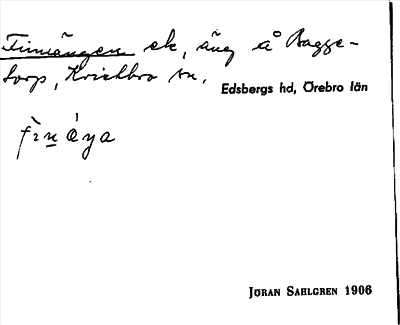 Finnängen ek, äng å Bagge-
torp, Kvistbro sn.
Edsbergs hd, Örebro län
JÖRAN SAHLGREN 1906